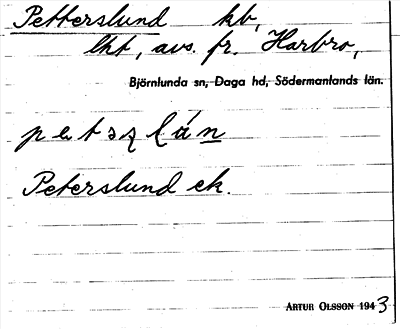 Petterslund kb,
lht, avs. fr. Harbro,
Björnlunda sn, Daga hd, Södermanlands län.
Peterslund ek.
ARTUR OLSSON 1943